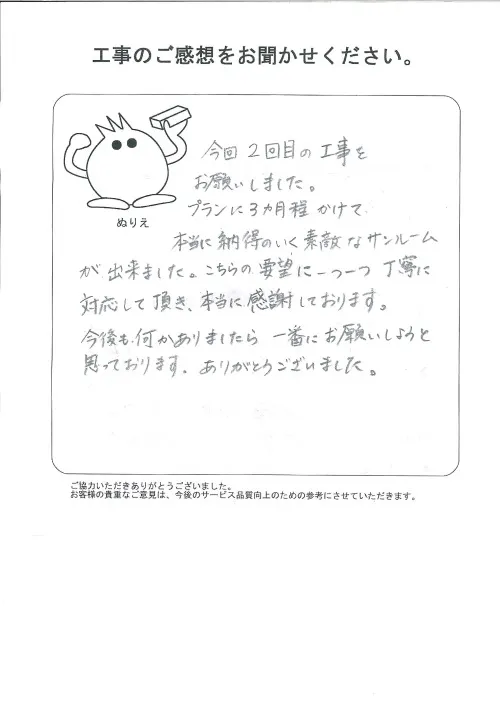 工事のご感想をお聞かせください。
今回2回目の工事を
お願いしました。
プランに3カ月程かけて
ぬりえ
本当に納得のいく素敵なサンルーム
が出来ました。こちらの要望に一つ一つ丁寧に
対応して頂き、本当に感謝しております。
今後も何かありましたら一番にお願いしようと
思っております。ありがとうございました。
ご協力いただきありがとうございました。
お客様の貴重なご意見は、今後のサービス品質向上のための参考にさせていただきます。